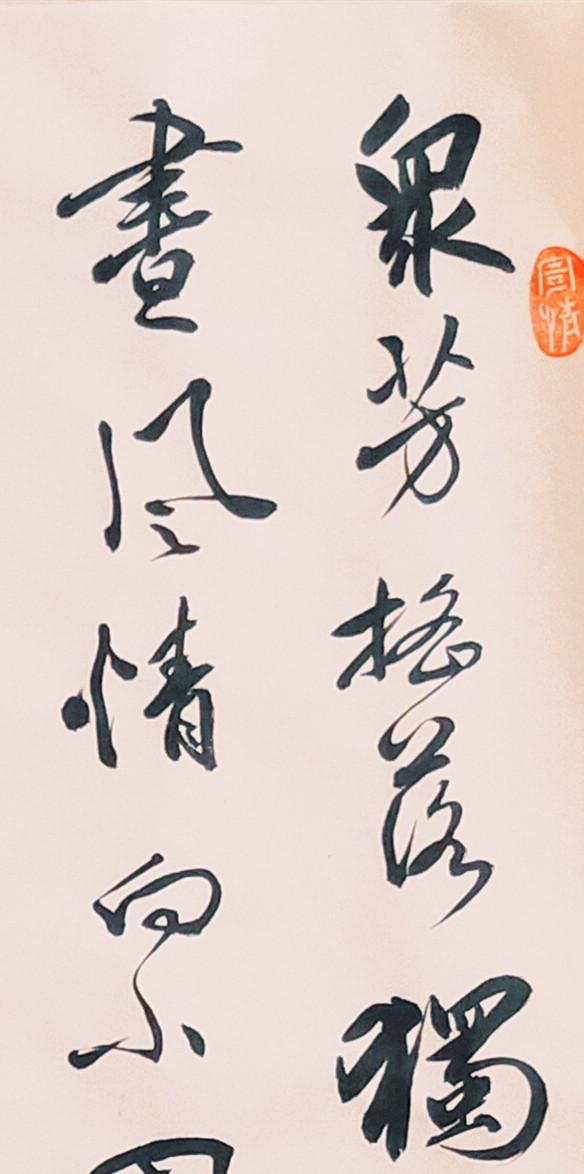 眾芳搖落獨
盡風情向小